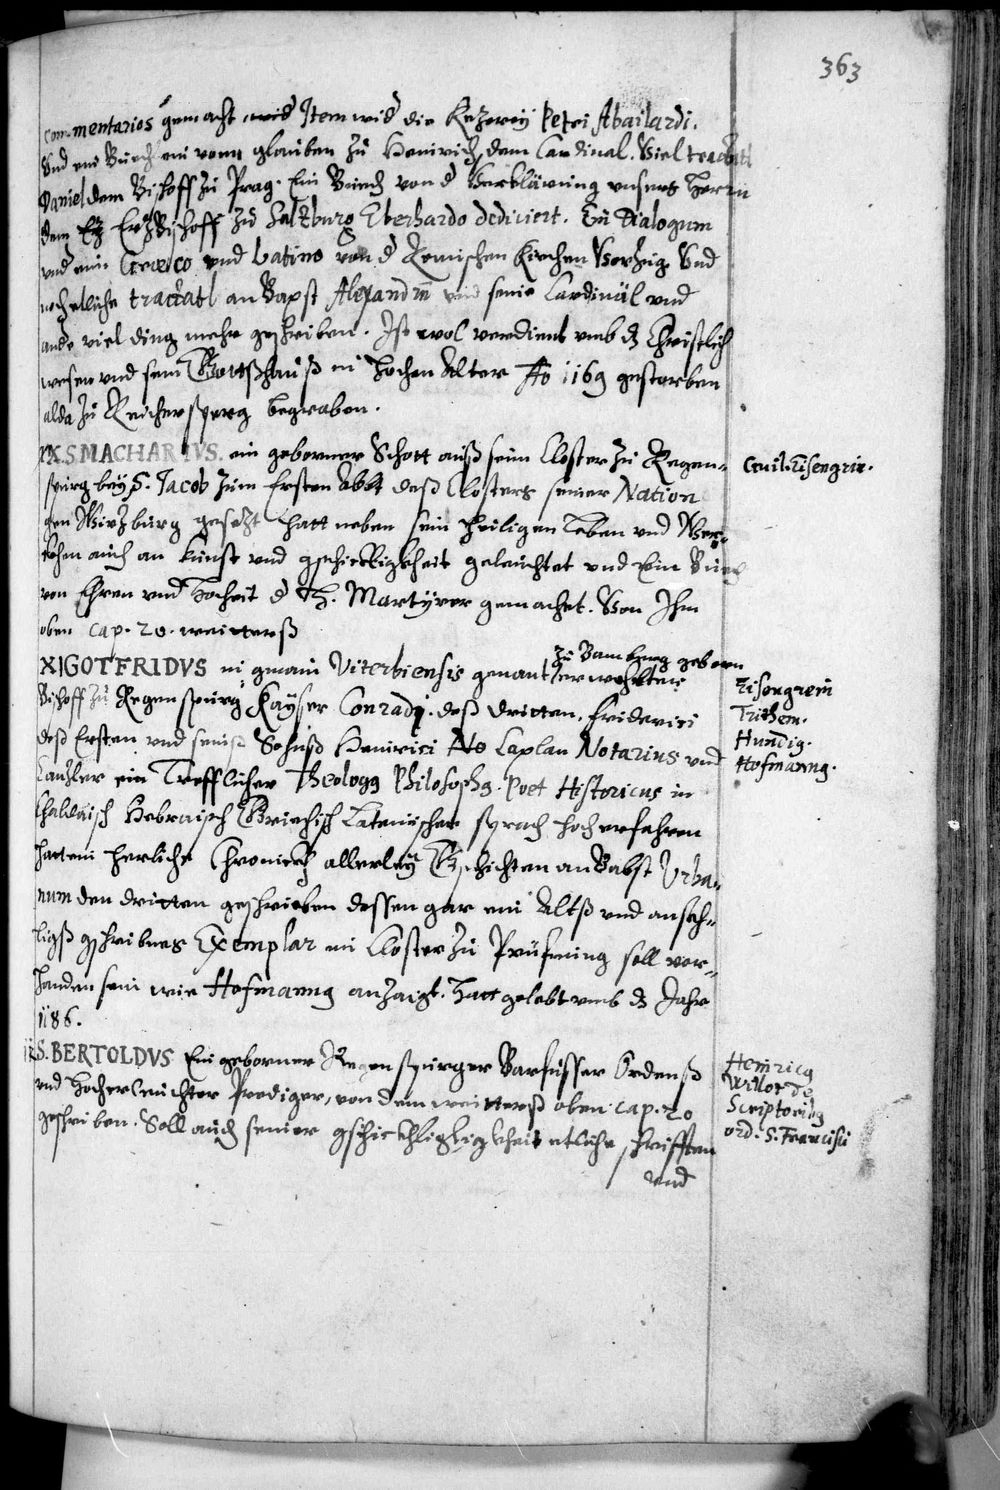 363
commentarios gemacht Item wid die Kezerey Petri Abailardi.
Vnd ein Büechlein vom glauben zu Heinrich dem Cardinal. Viel tractatl
Daniel dem Bischoff zu Prag. Ein Buech von d Verklärung vnsers Herrn
dem ErtzBischoff zu Saltzburg Eberhardo dediciert. Ein Dialogum
vnd ein Graeco vnd Latino von d Römischen Kirchen Vorzig. Vnd
noch etliche tractatl an Bapst Alexandrū vnd seine Cardinäl vnd
ande viel ding mehr geschriben. Ist wol verdient vmb dz Christlich
wesen vnd sein Gottßhauß in hochen Alter Ao 1169 gestorben
alda zu Reichersperg begraben.
IX S. MACHARIVS. ein geborner Schott auß seim Closter zu Regen-
spurg bey S. Jacob zum Ersten Abbt deß Closters seiner Nation
gen Wirzburg gesezt hatt neben sein heiligen Leben vnd Wer-
khen auch an kunst vnd gschickligkheit geleuchtet vnd Ein Buech
von Ehren vnd hocheit d H. Martyrer gemachet. Von Ihm
oben cap. 20. weitterß
Cruil. Eisengrin.
XI GOTFRIDVS in gmain Viterbiensis genant zu Bamberg geborn erwohlter
Bischoff zu Regenspurg Kayser Conradi deß dritten. Friderici
deß Ersten vnd seines Sohnß Heinrici Caplan Notarius vnd
Canzler ein Trefflicher Theologg Philosophg. Poet Historicus in
Chaldäisch Hebraisch Griechisch Lateinischer sprach hocherfahren
hatt ein herliche Chronickh allerley Gschichten an Babst Vrba-
num den dritten geschrieben dessen gar ein Altß vnd ansech-
ligß gschribnes Exemplar im Closter zu Prüfening soll vor-
handen sein wie Hofmanng anzaigt. Hatt gelebt vmb dz Jahr
1186.
Eisengrein
Trithem.
Hundig.
Hofmanng.
S. BERTOLDVS Ein geborner Regenspurger Barfüsser Ordenß
vnd hocherleuchter Prediger, von dem weitterß oben cap. 20
geschriben. Soll auch seiner gschickhligkheit etliche schrifften
vnd
Heinricg
Willot de
Scriptoribg
ord. S. Francisci